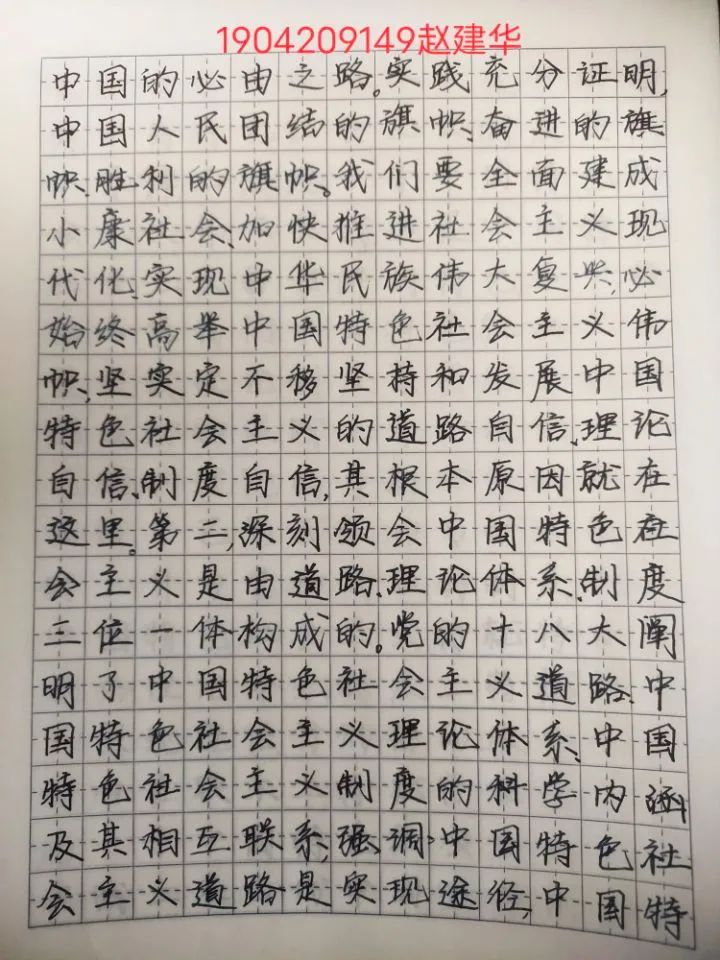 1904209149赵建华
中国的必由之路。实践充分证明,
中国人民团结的旗帜、奋进的旗
帜、胜利的旗帜。我们要全面建成
小康社会、加快推进社会主义现
代化、实现中华民族伟大复兴,必
始终高举中国特色社会主义伟
帜,坚实定不移坚持和发展中国
特色社会主义的道路自信、理论
自信、制度自信,其根本原因就在
这里。第二,深刻领会中国特色在
会主义是由道路、理论体系、制度
三位一体构成的。党的十八大阐
明了中国特色社会主义道路、中
国特色社会主义理论体系、中国
特色社会主义制度的科学内涵
及其相互联系,强调:中国特色社
会主义道路是实现途径,中国特